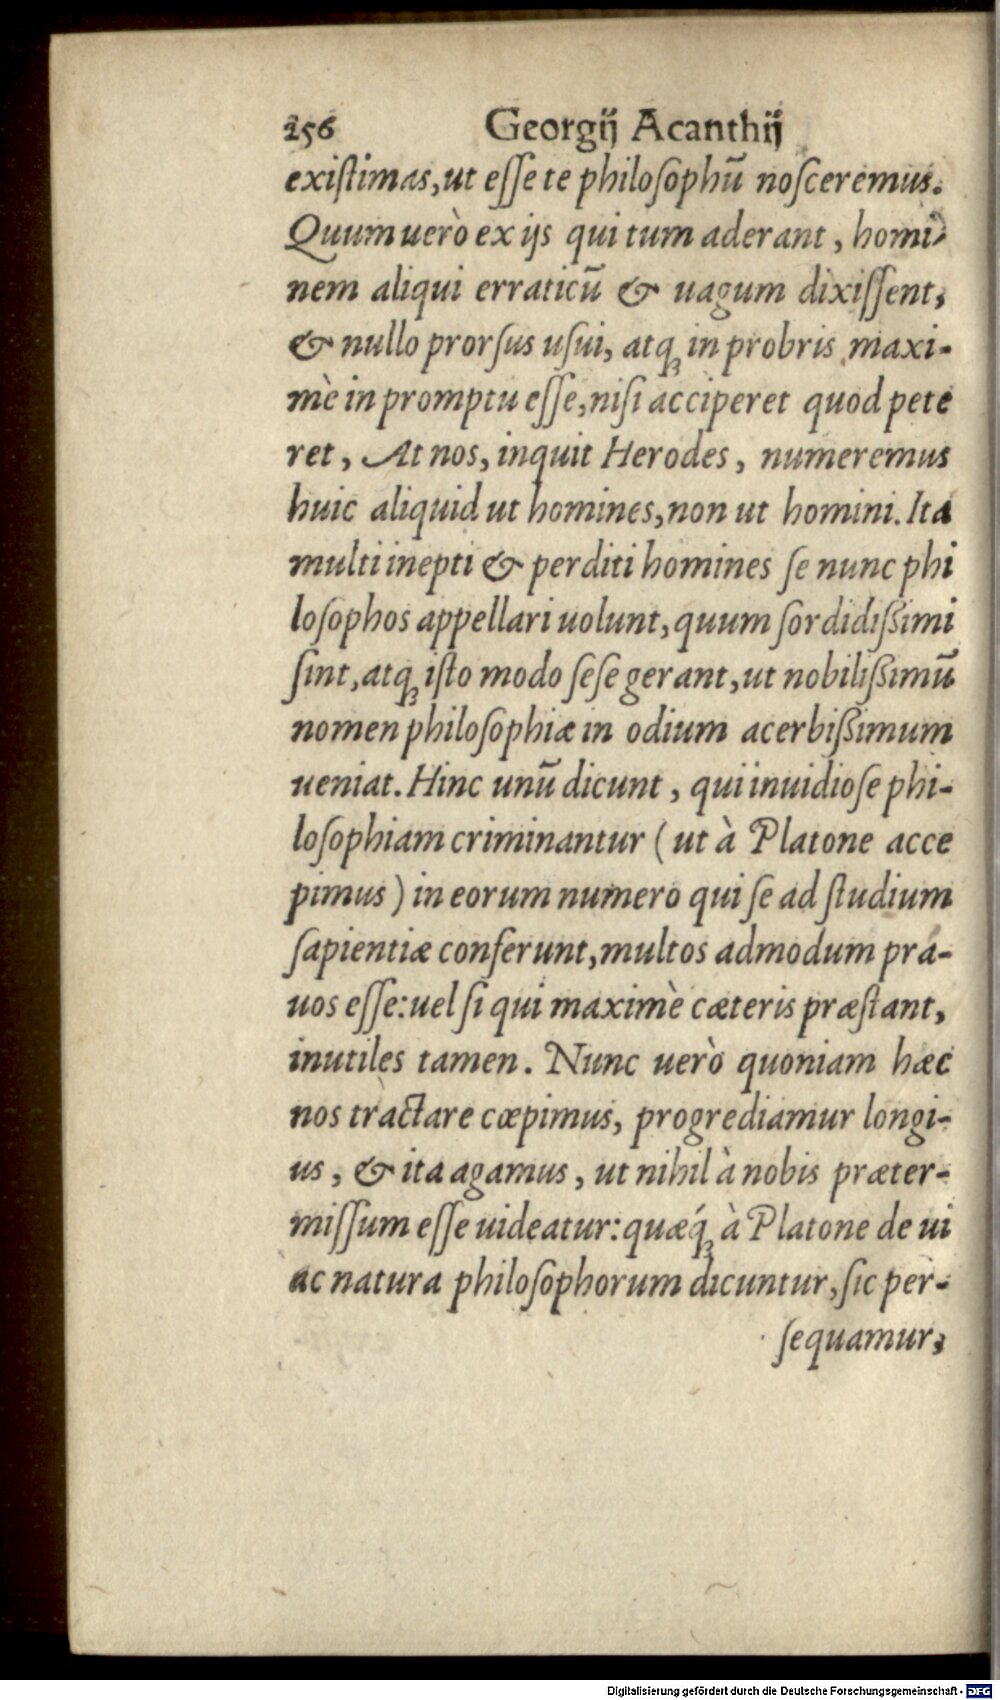 256 Georgij Acanthij
existimas, ut esse te philosophū nosceremus.
Quum uerò ex ijs qui tum aderant, homi-
nem aliqui erraticū & uagum dixissent,
& nullo prorsus usui, atq̃ in probris maxi-
mè in promptu esse, nisi acciperet quod pete
ret, At nos, inquit Herodes, numeremus
huic aliquid ut homines, non ut homini. Ita
multi inepti & perditi homines se nunc phi
losophos appellari uolunt, quum sordidißimi
sint, atq̃ isto modo sese gerant, ut nobilißimū
nomen philosophiæ in odium acerbißimum
ueniat. Hinc unū dicunt, qui inuidiose phi-
losophiam criminantur (ut à Platone acce
pimus) in eorum numero qui se ad studium
sapientiæ conferunt, multos admodum pra-
uos esse: uel si qui maximè cæteris præstant,
inutiles tamen. Nunc uerò quoniam hæc
nos tractare cœpimus, progrediamur longi-
us, & ita agamus, ut nihil à nobis præter-
missum esse uideatur: quæq́ à Platone de ui
ac natura philosophorum dicuntur, sic per-
sequamur,
Digitalisierung gefördert durch die Deutsche Forschungsgemeinschaft - DFG